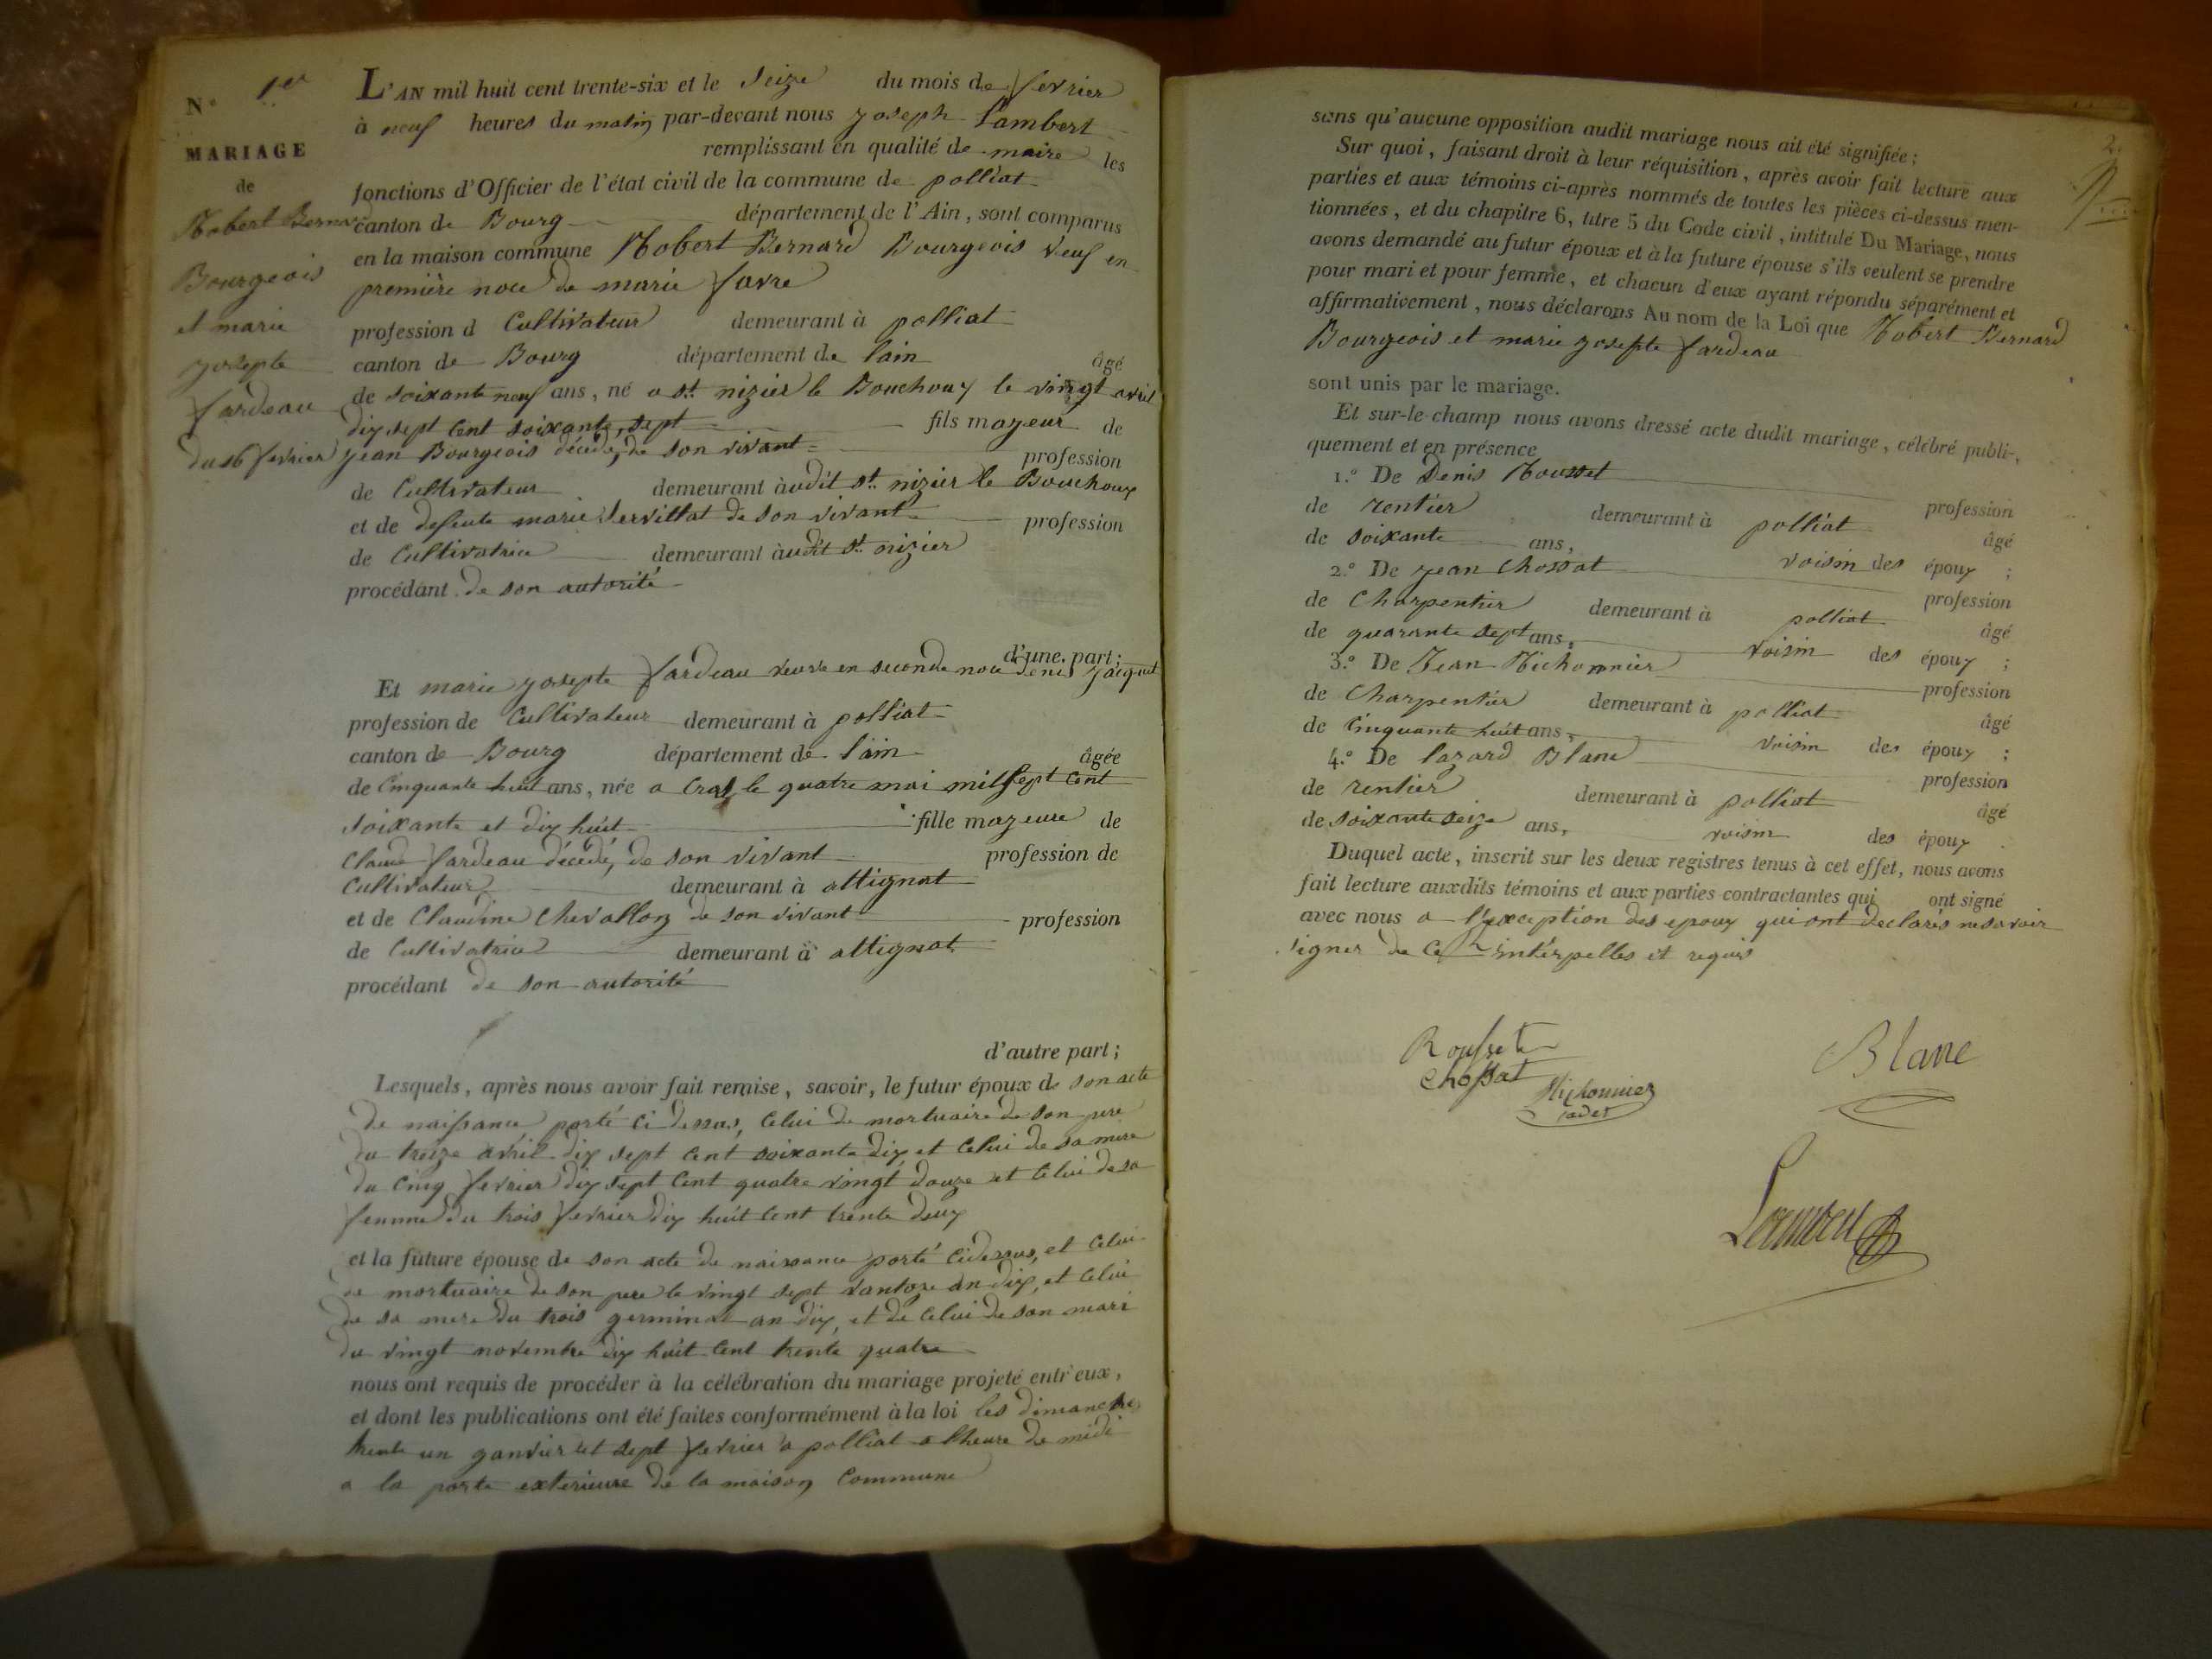 N.° 1er
MARIAGE
de
Robert Bernard
Bourgeois
et marie
josepte
fardeau
du 16 fevrier
L'AN mil huit cent trente-six et le Seize du mois de fevrier
à neuf heures du matin par-devant nous joseph Lambert
remplissant en qualité de maire les
fonctions d'Officier de l'état civil de la commune de polliat
canton de Bourg département de l'Ain, sont comparus
en la maison commune Robert Bernard Bourgeois veuf en
première noce de marie favre
profession d Cultivateur demeurant à polliat
canton de Bourg département de lain âgé
de soixante neuf ans, né a st. nizier le Bouchoux le vingt avril
dix sept cent soixante sept fils majeur de
jean Bourgeois décédé, de son vivant profession
de Cultivateur demeurant audit st. nizier le Bouchoux
et de defeute marie Servillat de son vivant profession
de Cultivatrice demeurant audit st. nizier
procédant de son autorité
d'une part;
Et marie josepte fardeau veuve en seconde noce denis jacquet
profession de Cultivateur demeurant à polliat
canton de Bourg département de l'ain âgée
de Cinquante huit ans, née a Cras le quatre mai mil sept cent
soixante et dix huit fille majeure de
Claude fardeau décédé, de son vivant profession de
Cultivateur demeurant à attignat
et de Claudine Chevallon de son vivant profession
de Cultivatrice demeurant à attignat
procédant de son autorité
d'autre part;
Lesquels, après nous avoir fait remise, savoir, le futur époux de son acte
de naissance porté ci dessus, Celui de mortuaire de son pere
du treize avril dix sept cent soixante dix et Celui de sa mere
du cinq fevrier dix sept cent quatre vingt douze et Celui de sa
femme du trois fevrier dix huit cent trente deux
et la future épouse de son acte de naissance porté cidessus, et Celui
de mortuaire de son pere le vingt sept vantoze an dix, et Celui
de sa mere du trois germinal an dix, et de Celui de son mari
du vingt novembre dix huit cent trente quatre
nous ont requis de procéder à la célébration du mariage projeté entr'eux,
et dont les publications ont été faites conformément à la loi les dimanches
trente un janvier et sept fevrier a polliat a lheure de midi
a la porte exterieure de la maison Commune
2.
sans qu'aucune opposition audit mariage nous ait été signifiée;
Sur quoi, faisant droit à leur réquisition, après avoir fait lecture aux
parties et aux témoins ci-après nommés de toutes les pièces ci-dessus men-
tionnées, et du chapitre 6, titre 5 du Code civil, intitulé Du Mariage, nous
avons demandé au futur époux et à la future épouse s'ils veulent se prendre
pour mari et pour femme, et chacun d'eux ayant répondu séparément et
affirmativement, nous déclarons Au nom de la Loi que Robert Bernard
Bourgeois et marie josepte fardeau
sont unis par le mariage.
Et sur-le-champ nous avons dressé acte dudit mariage, célébré publi-
quement et en présence
1.° De Denis Rousset profession
de rentier demeurant à polliat âgé
de soixante ans, voisin des époux ;
2.° De jean Chossat profession
de Charpentier demeurant à polliat âgé
de quarante sept ans, voisin des époux ;
3.° De Jean Michonnier profession
de Charpentier demeurant à polliat âgé
de Cinquante huit ans, voisin des époux ;
4.° De lazard Blanc profession
de rentier demeurant à polliat âgé
de soixante seize ans, voisin des époux .
Duquel acte, inscrit sur les deux registres tenus à cet effet, nous avons
fait lecture auxdits témoins et aux parties contractantes qui ont signé
avec nous a l'exception des epoux qui ont declarés ne savoir
signer de ce interpellés et requis
Rousset
Chossat
Michonnier
cadet
Blanc
Lambert